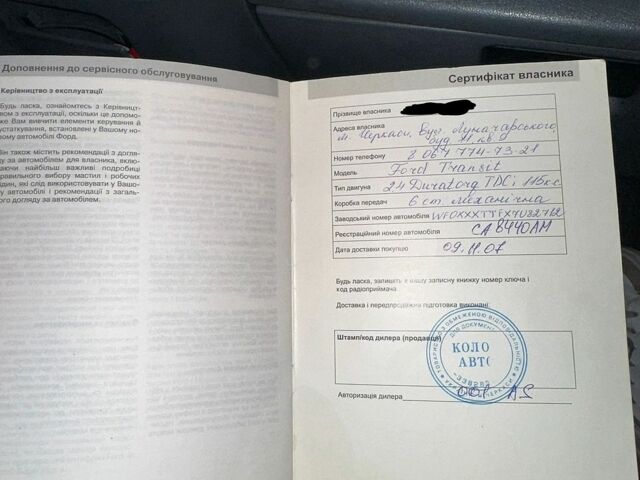 Доповнення до сервісного обслуговування
Керівництво з експлуатації
Будь ласка, ознайомтесь з Керівницт-
вом з експлуатації, оскільки це допомо-
же Вам вивчити елементи керування й
устаткування, встановлені у Вашому
автомобілі Форд.
Він також містить рекомендації з догля-
у за автомобілем для власника, вклю-
аючи найбільш важливі подробиці
правильного вибору мастил і робочих
ідин, які слід використовувати у Вашо-
у автомобілі і рекомендації з загаль-
ого догляду за автомобілем.
Сертифікат власника
Прізвище власника
Адреса власника
м. Черкаси, вул Луначарського
буд
Номер телефону 8 067 774-73-21
Модель Ford Transit
Тип двигуна 2.4 Duratorq TDCi 115 к.с.
Коробка передач 6 ст механічна
Заводський номер автомобіля
Реєстраційний номер автомобіля СА 8440 АМ
Дата доставки покупцю 09.11.07
Будь ласка, запишіть в вашу записну книжку номер ключа і
код радіоприймача
Доставка і передпродажна підготовка виконані:
Штамп/код дилера (продавця)
ТОВАРИСТВО З ОБМЕЖЕНОЮ ВІДПОВІДАЛЬНІСТЮ
ДЛЯ ДОКУМЕНТ
КОЛО
АВТО
Авторизація дилера